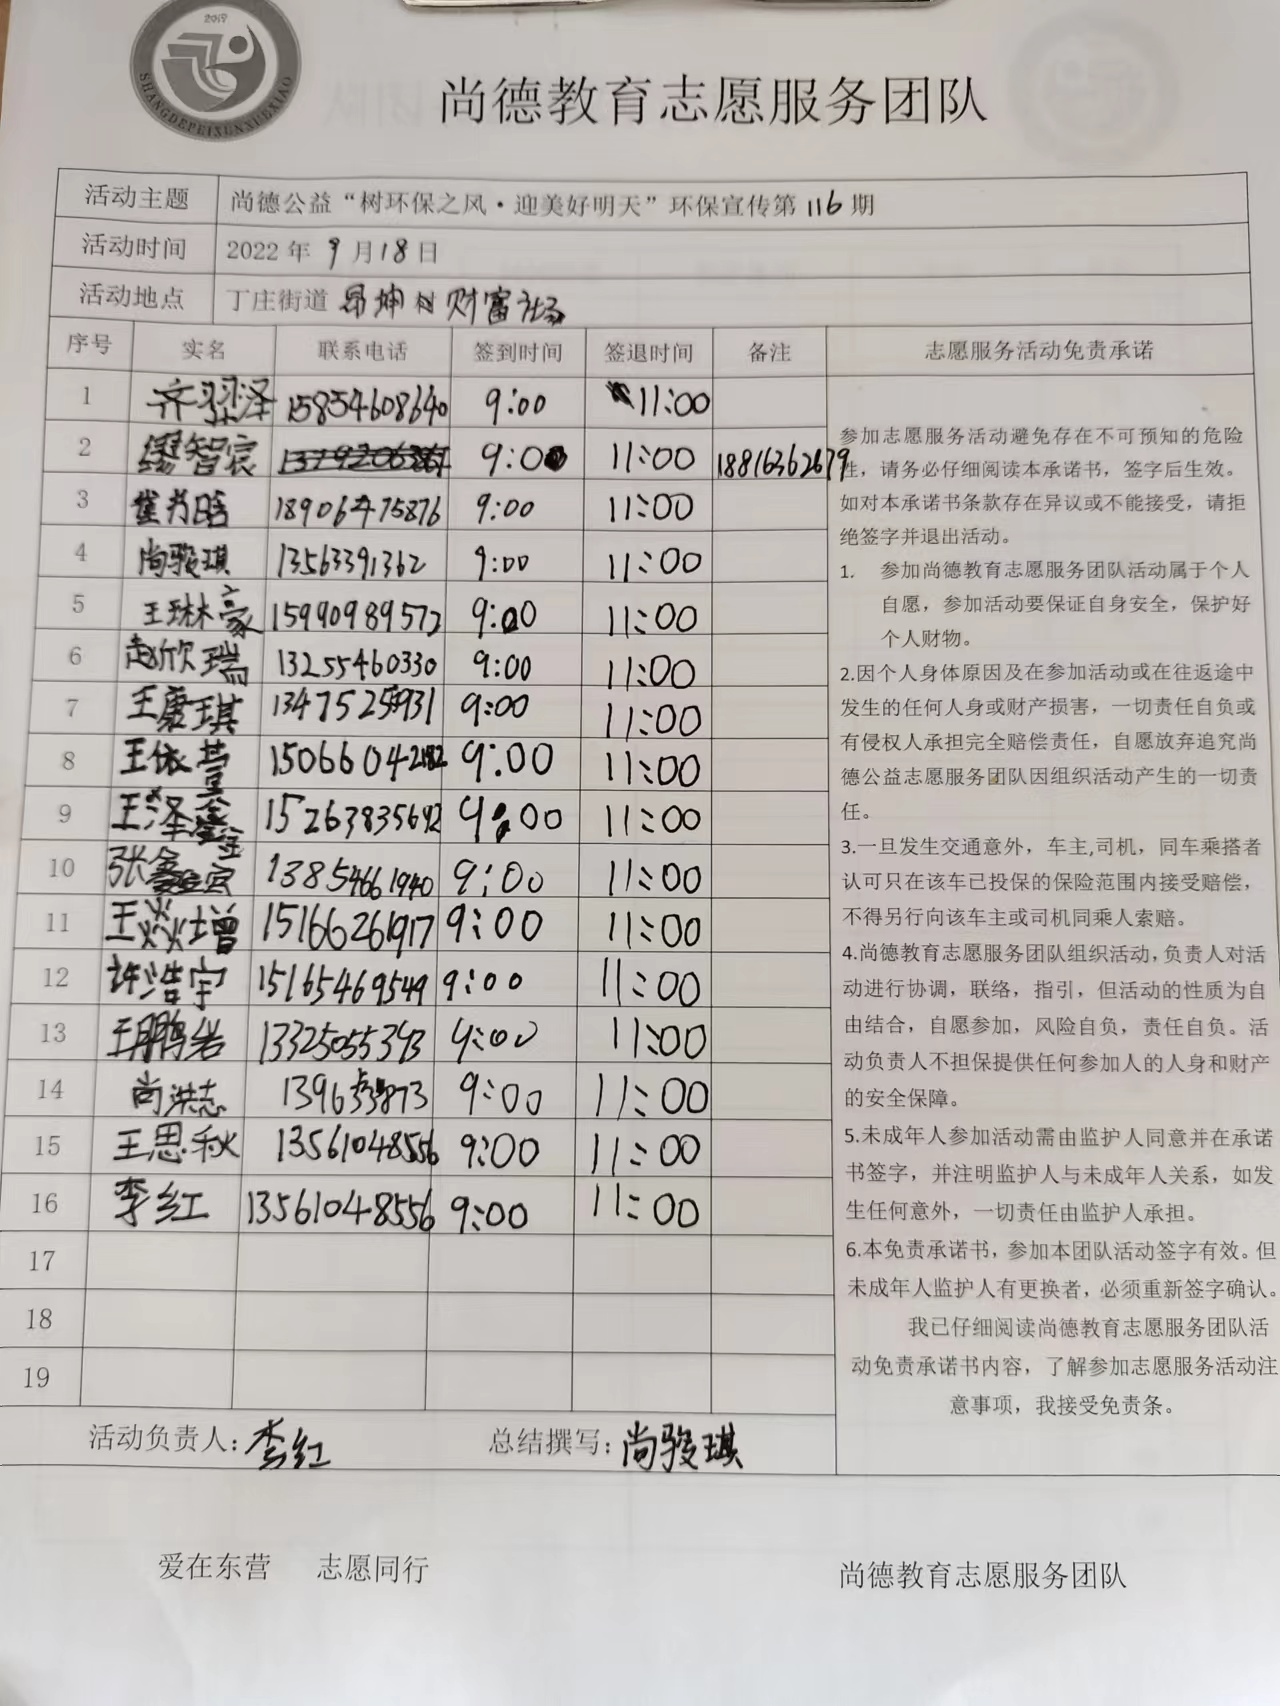 2017
SHANGDEPEIXUNXUEXIAO
尚德教育志愿服务团队
活动主题 尚德公益“树环保之风·迎美好明天”环保宣传第116期
活动时间 2022年9月18日
活动地点 丁庄街道 昂坤村财富社场
序号 实名 联系电话 签到时间 签退时间 备注 志愿服务活动免责承诺
1 齐 泽 15854608640 9:00 11:00
2 缪智宸 9:00 11:00 18816362679
3 18906475876 9:00 11:00
4 尚骏琪 13563391362 9:00 11:00
5 王琳豪 15990989572 9:00 11:00
6 赵欣瑞 13255460330 9:00 11:00
7 王康琪 9:00 11:00
8 王依萱 9:00 11:00
9 王泽鑫 15263835692 9:00 11:00
10 张鑫宸 13854661940 9:00 11:00
11 王焱增 15166261917 9:00 11:00
12 许浩宇 15165469549 9:00 11:00
13 王鹏岩 13325055343 9:00 11:00
14 尚洪志 9:00 11:00
15 王思秋 13561048556 9:00 11:00
16 李红 13561048556 9:00 11:00
17
18
19
参加志愿服务活动避免存在不可预知的危险
性，请务必仔细阅读本承诺书，签字后生效。
如对本承诺书条款存在异议或不能接受，请拒
绝签字并退出活动。
1. 参加尚德教育志愿服务团队活动属于个人
自愿，参加活动要保证自身安全，保护好
个人财物。
2.因个人身体原因及在参加活动或在往返途中
发生的任何人身或财产损害，一切责任自负或
有侵权人承担完全赔偿责任，自愿放弃追究尚
德公益志愿服务团队因组织活动产生的一切责
任。
3.一旦发生交通意外，车主,司机，同车乘搭者
认可只在该车已投保的保险范围内接受赔偿，
不得另行向该车主或司机同乘人索赔。
4.尚德教育志愿服务团队组织活动，负责人对活
动进行协调，联络，指引，但活动的性质为自
由结合，自愿参加，风险自负，责任自负。活
动负责人不担保提供任何参加人的人身和财产
的安全保障。
5.未成年人参加活动需由监护人同意并在承诺
书签字，并注明监护人与未成年人关系，如发
生任何意外，一切责任由监护人承担。
6.本免责承诺书，参加本团队活动签字有效。但
未成年人监护人有更换者，必须重新签字确认。
我已仔细阅读尚德教育志愿服务团队活
动免责承诺书内容，了解参加志愿服务活动注
意事项，我接受免责条。
活动负责人：李红 总结撰写：尚骏琪
爱在东营 志愿同行 尚德教育志愿服务团队